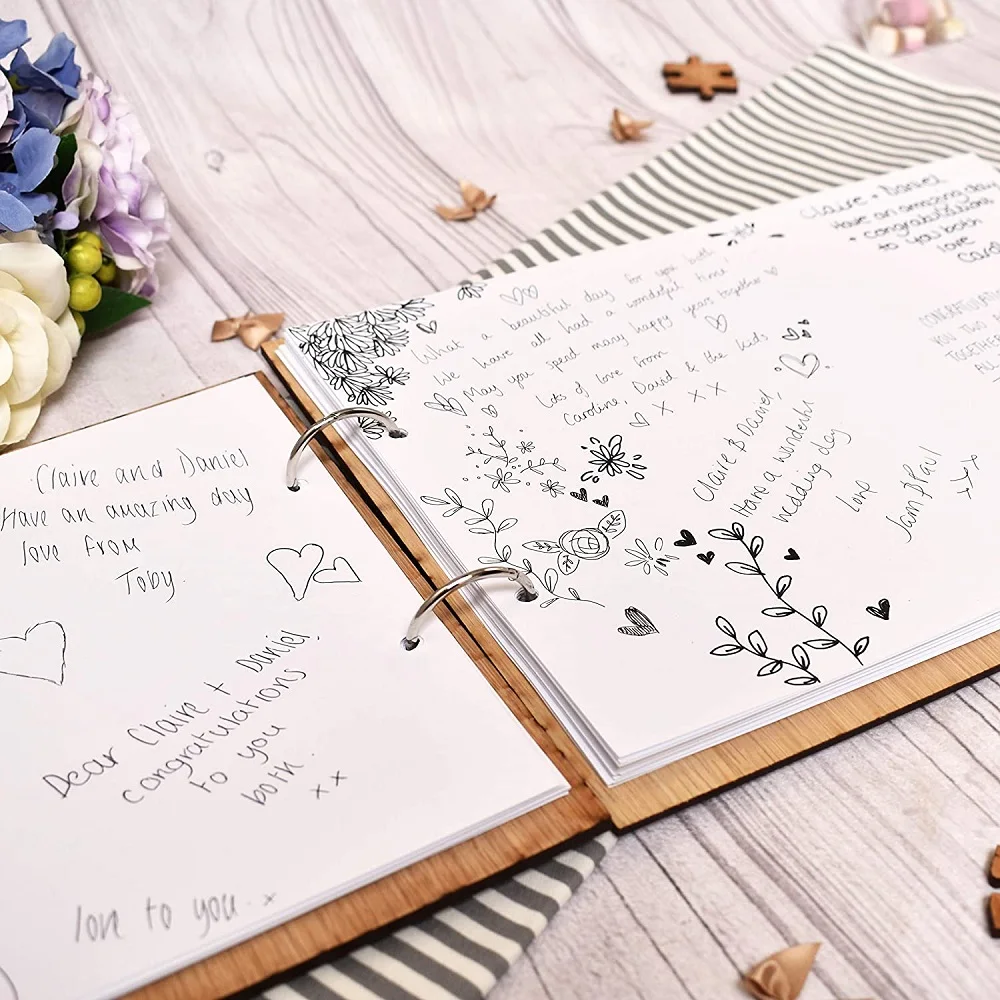 Claire and Daniel
Have an amazing day
love from
Toby.
Dear Claire + Daniel,
congratulations
to you
both.
x x
love to you. x
What a beautiful day for you both,
We have all had a wonderful time
May you spend many happy years together
Lots of love from
Caroline, David & the kids
x x x
Claire & Daniel,
Have a wonderful
wedding day
love
Sam & Paul
x x x
Claire + Daniel
Have an amazing day
Congratulations
to you both
love
CONGRATULAT
YOU TWO
TOGETHER
ALL